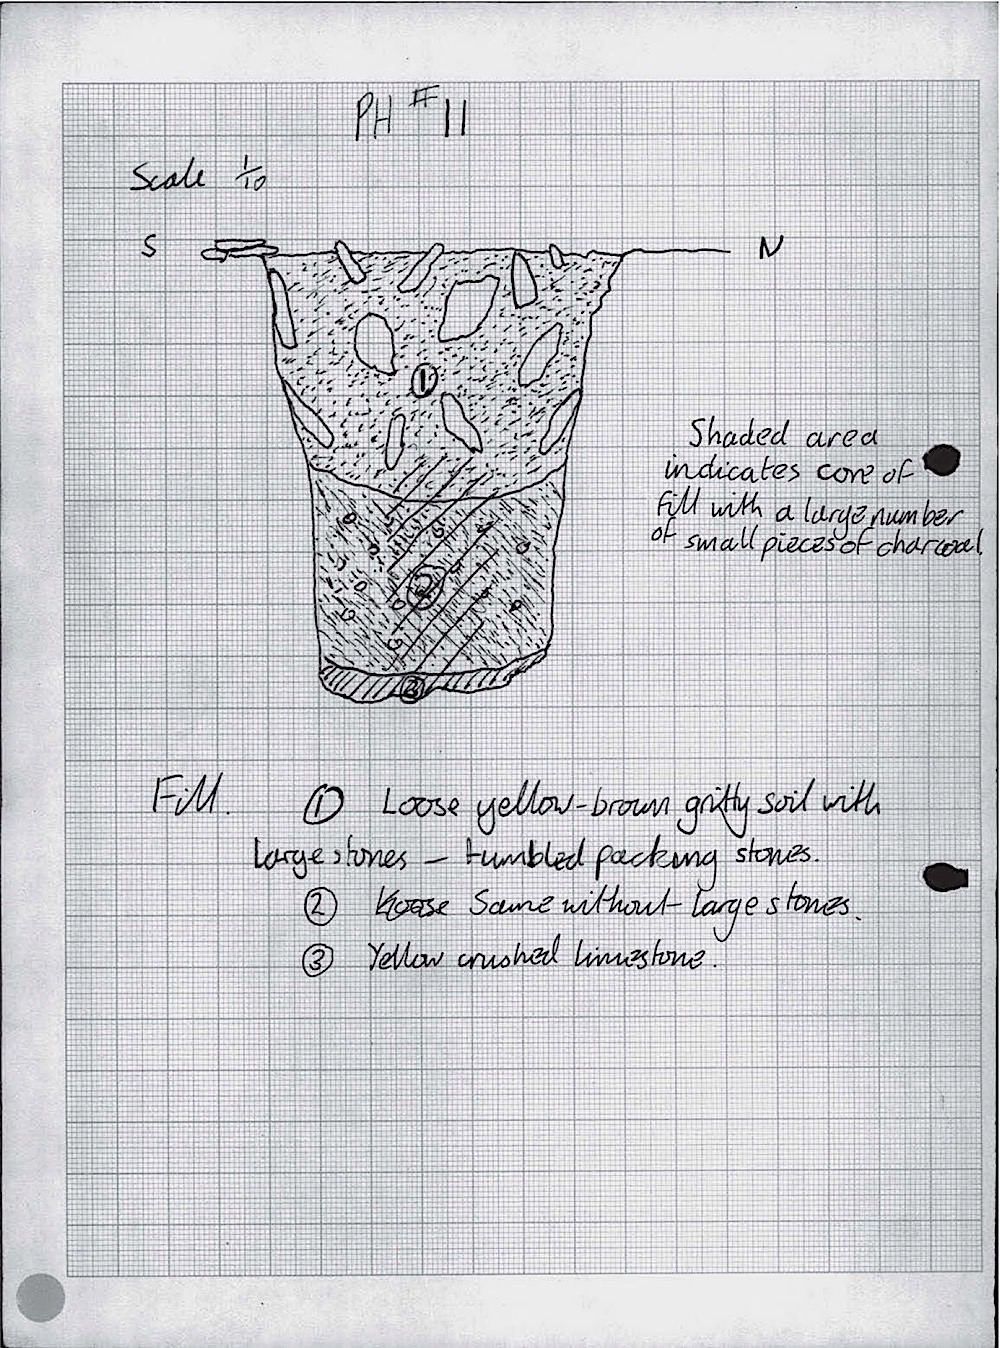 PH #11
Scale 1/10
S
N
1
2
3
Shaded area
indicates core of
fill with a large number
of small pieces of charcoal.
Fill. ① Loose yellow-brown gritty soil with
large stones – tumbled packing stones.
② Loose Same without large stones.
③ Yellow crushed limestone.